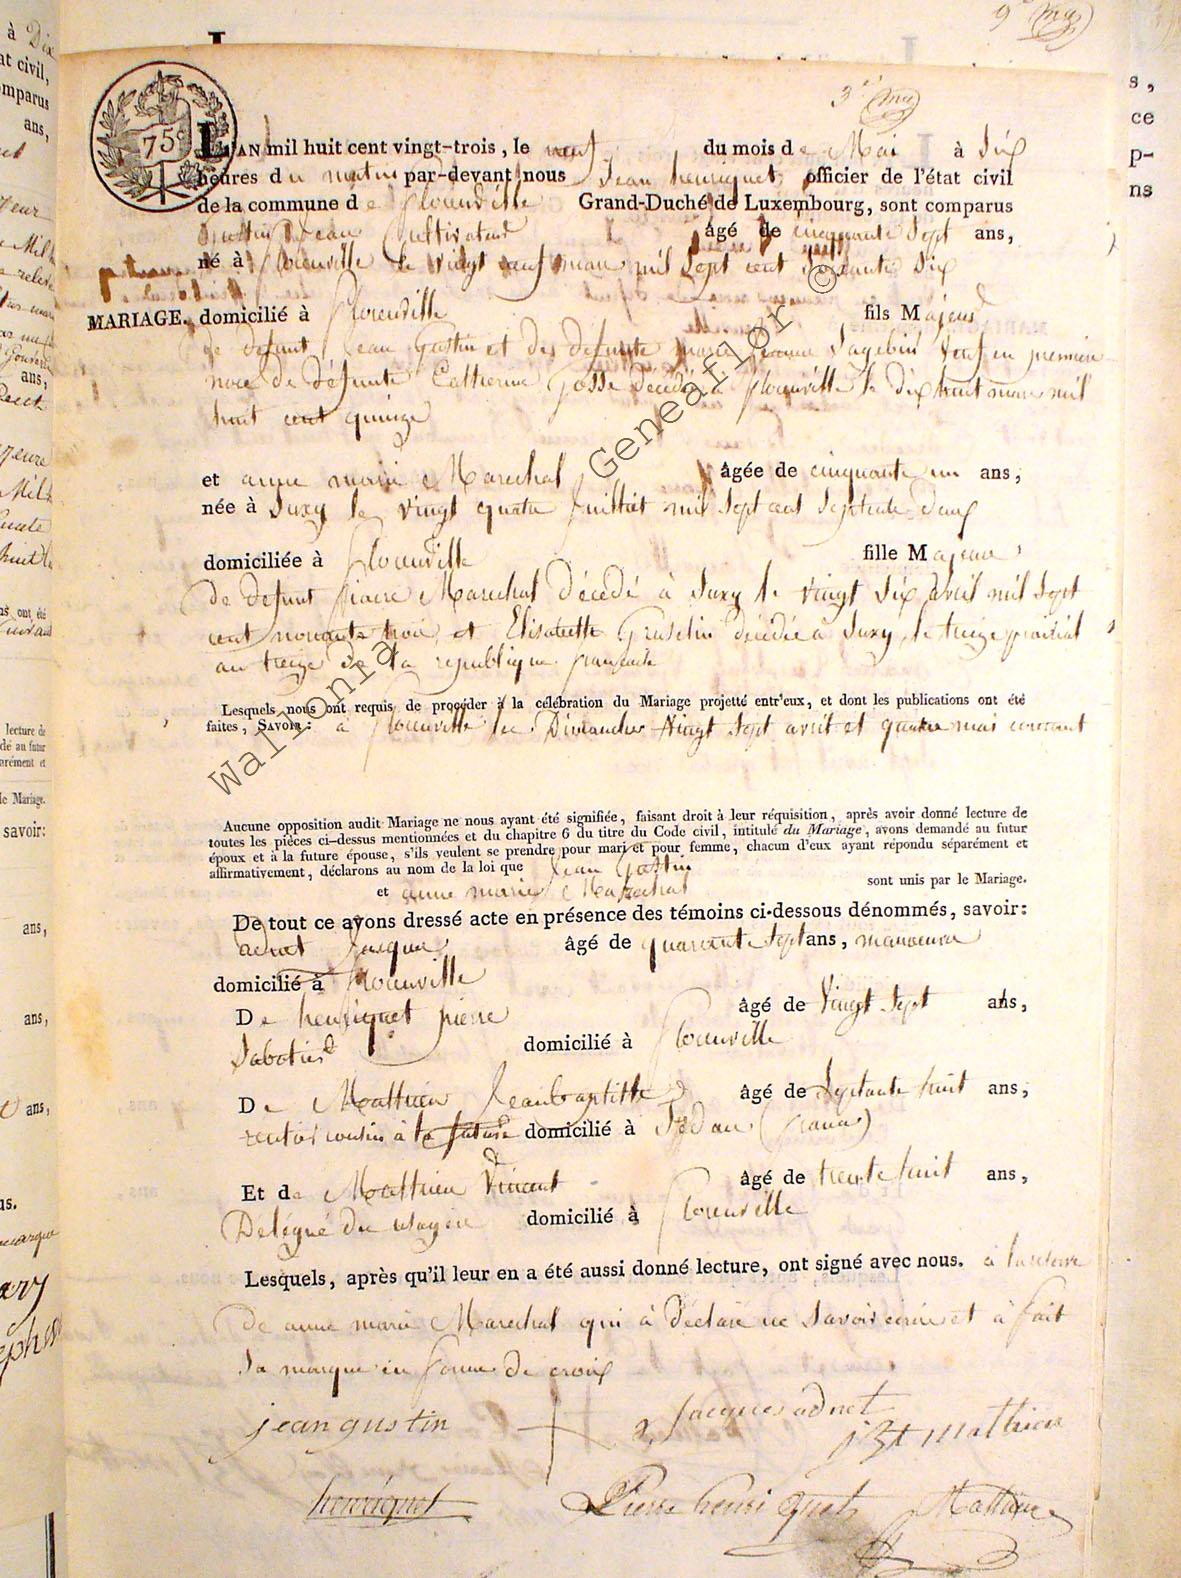 9e
3e
75c
L'AN mil huit cent vingt-trois, le neuf du mois de Mai à dix
heures du matin par-devant nous Jean henriquet officier de l'état civil
de la commune de florenville Grand-Duché de Luxembourg, sont comparus
Gustin Jean Cultivateur âgé de cinquante Sept ans,
né à florenville le vingt neuf mars mil Sept cent soixante six
MARIAGE. domicilié à florenville fils Majeur
de defunt Jean Gustin et de defunte marie jeanne veuf en premiere
noce de défunte Catherine Gosse décédée à florenville le dix huit mars mil
huit cent quinze
et anne marie Marechal âgée de cinquante un ans,
née à Suxy le vingt quatre Juillet mil Sept cent Septante deux
domiciliée à florenville fille Majeure
de defunt fiacre Marechal décédé à Suxy le vingt Six avril mil Sept
cent nonante trois et Elisabethe décédée à Suxy le treize prairial
an treize de la republique francaise
Lesquels nous ont requis de procéder à la célébration du Mariage projetté entr'eux, et dont les publications ont été
faites, Savoir: à florenville les Dimanches vingt Sept avril et quatre mai courant
Aucune opposition audit Mariage ne nous ayant été signifiée, faisant droit à leur réquisition, après avoir donné lecture de
toutes les pièces ci-dessus mentionnées et du chapitre 6 du titre du Code civil, intitulé du Mariage, avons demandé au futur
époux et à la future épouse, s'ils veulent se prendre pour mari et pour femme, chacun d'eux ayant répondu séparément et
affirmativement, déclarons au nom de la loi que Jean Gustin
et anne marie Marechal sont unis par le Mariage.
De tout ce avons dressé acte en présence des témoins ci-dessous dénommés, savoir:
adnet Jacques âgé de quarante Sept ans, manoeuvre
domicilié à florenville
De henriquet pierre âgé de Vingt Sept ans,
Sabotier domicilié à florenville
De Matthieu Jean baptiste âgé de Septante huit ans,
rentier cousin à la future domicilié à Sedan (france)
Et de Matthieu Vincent âgé de trente huit ans,
Délégué du domicilié à florenville
Lesquels, après qu'il leur en a été aussi donné lecture, ont signé avec nous. à la reserve
De anne marie Marechal qui à déclaré ne Savoir écrire et à fait
Sa marque en forme de croix
jean gustin
Jacques adnet
j Bt mathieu
henriquet
Pierre henriquet
Matthieu
Wallonia Geneaflor ©